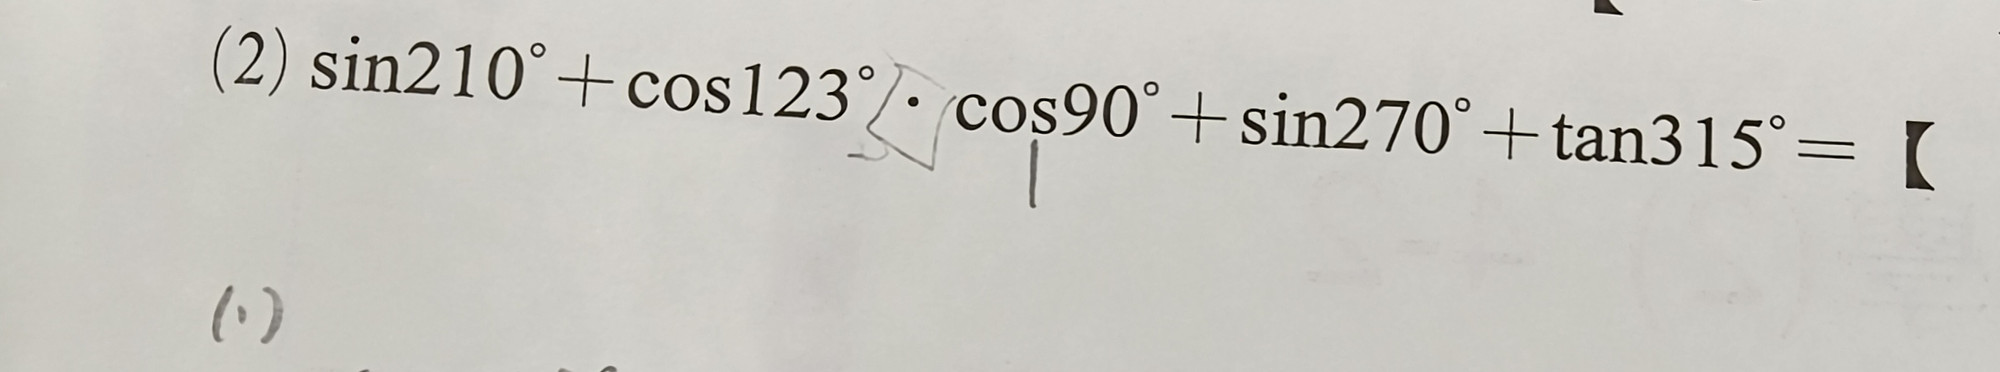 (2) sin210°+cos123°·cos90°+sin270°+tan315°=【
(1)